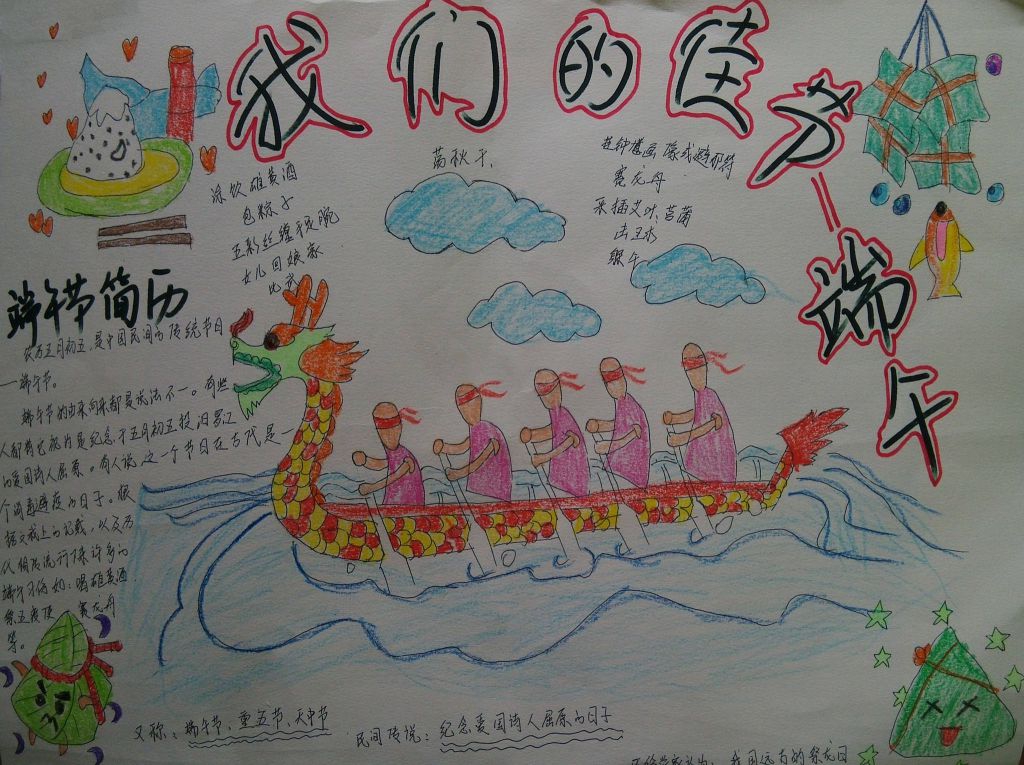 我们的佳节——端午
荡秋千、
涂饮雄黄酒
包粽子
五彩丝缠手腕
女儿回娘家
比武
挂钟馗画 像戴避邪符
赛龙舟
采插艾叶、菖蒲
击卫水
躲午
端午节简历
农历五月初五，是中国民间的传统节日
—端午节。
端午节的由来向来都是说法不一。有些
人都将它视为是纪念于五月初五投汨罗江
的爱国诗人屈原。有人说这一个节日在古代是一
个消毒避疫的日子。根
据文献上的记载，以及历
代相传流行下来许多的
端午习俗如：喝雄黄酒
祭五
赛龙舟
等。
又称：端午节、重五节、天中节
民间传说：纪念爱国诗人屈原的日子
我国远古的祭龙日